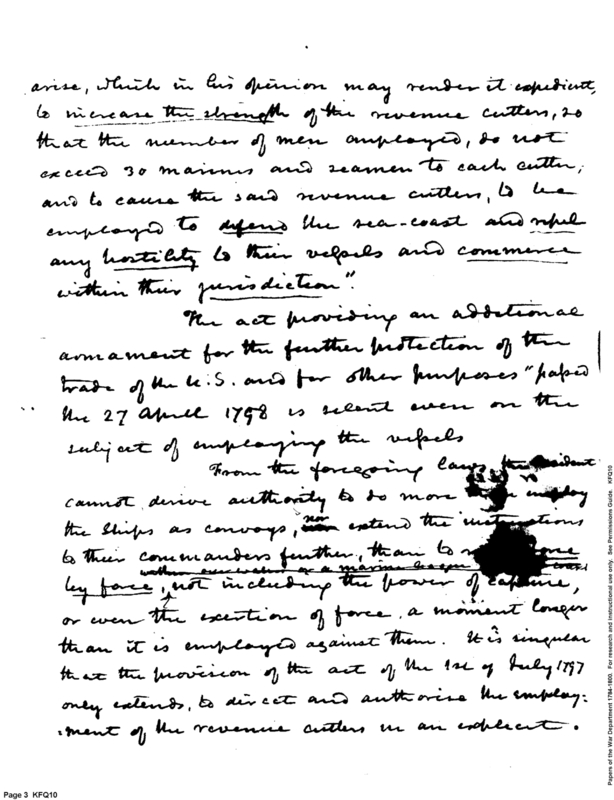 arise, which in his opinion may render it expedient,
to increase the strength of the revenue cutters, so
that the number of men employed, do not
exceed 30 marines and seamen to each cutter;
and to cause the said revenue cutters, to be
employed to defend the sea-coast and repel
any hostility to their vessels and commerce
within their jurisdiction".
The act providing an additional
armament for the further protection of the
trade of the U.S. and for other purposes" passed
the 27 April 1798 is silent even on the
subject of employing the vessels
From the foregoing laws the President
cannot derive authority to do more employ
the Ships as convoys, nor extend the instructions
to their commanders further, than to force
within our water or a marine league
by force, not including the power of capture,
or even the exertion of force, a moment longer
than it is employed against them. It is singular
that the provision of the act of the 1st of July 1797
only extends, to direct and authorise the employ:
:ment of the revenue cutters in an explicit.
Page 3 KFQ10
Papers of the War Department 1784-1800. For research and instructional use only. See Permissions Guide. KFQ10